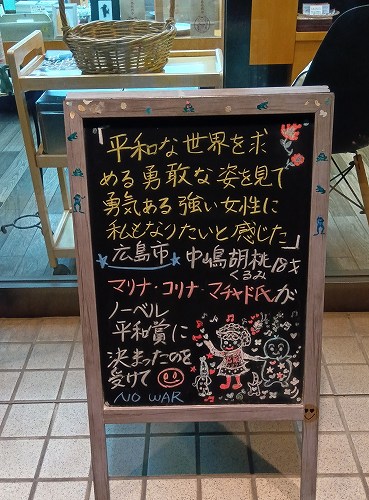 「平和な世界を求
める勇敢な姿を見て
勇気ある強い女性に
私もなりたいと感じた」
広島市 中嶋胡桃 18才
くるみ
マリナ・コリナ・マチャド氏が
ノーベル
平和賞に
決まったのを
受けて
NO WAR